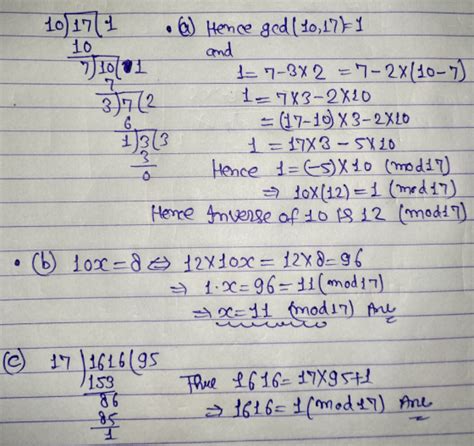 10)17(1
10
7)10(1
7
3)7(2
6
1)3(3
3
0
• (a) Hence gcd(10,17)=1
and
1=7-3×2 =7-2×(10-7)
1=7×3-2×10
=(17-10)×3-2×10
1=17×3-5×10
Hence 1=(-5)×10 (mod 17)
⇒ 10×(12)=1 (mod 17)
Hence Inverse of 10 is 12 (mod 17)
• (b) 10x=8 ⇔ 12×10x=12×8=96
⇒ 1·x=96=11 (mod 17)
⇒ x=11 (mod 17) Ans
(c) 17)1616(95
153
86
85
1
Thus 1616=17×95+1
⇒ 1616=1 (mod 17) Ans